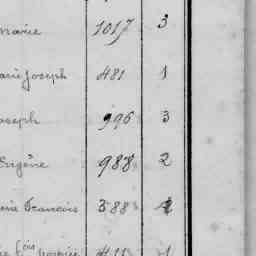 marie 1017 3
Marie Joseph 481 1
Joseph 996 3
Eugène 988 2
François 388 4
411 1